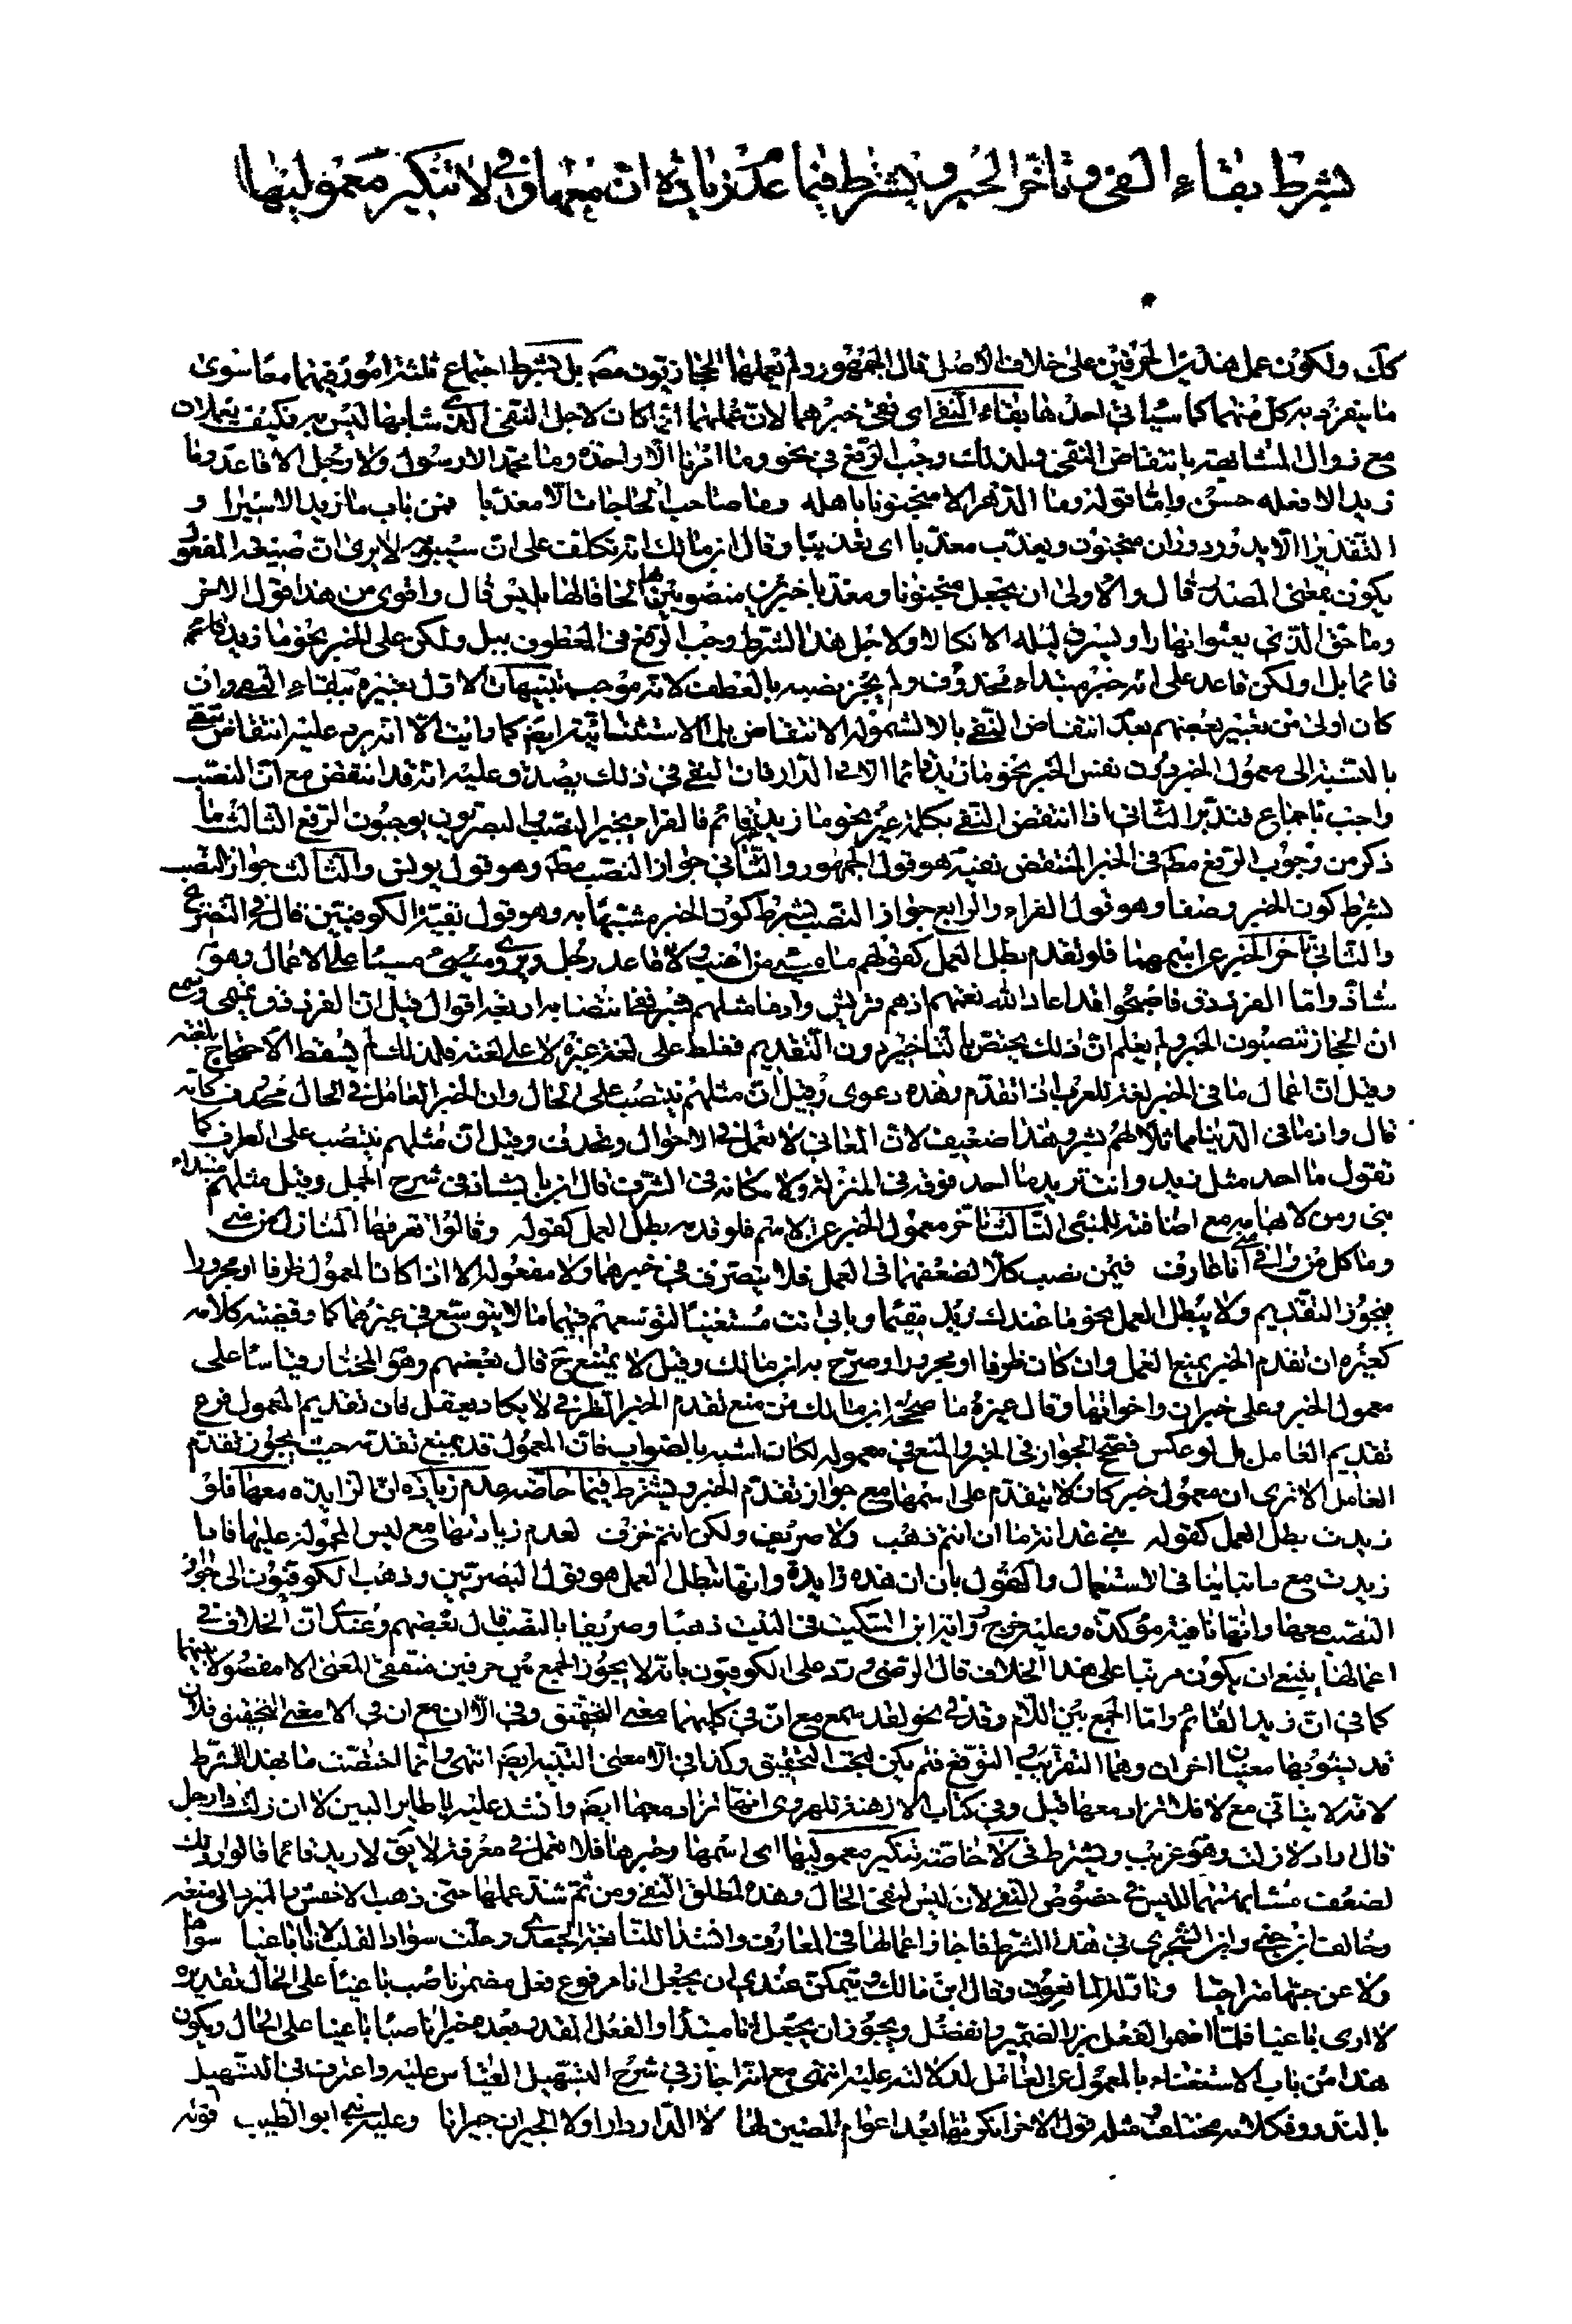 بشرط بقاء النفى وتأخر الخبر ويشترط فى ما عدم زيادة ان معها وفى لا تنكير معموليها
كك ولكون عمل هذين الحرفين على خلاف الاصل قال الجمهور ولم يعملها الحجازيون مطه بل بشرط اجتماع ثلثة امور فيهما معا سوى
ما ينفرد به كل منهما كما سيأتى احدها بقاء النفى اى نفى خبرهما لان عملهما انما كان لاجل النفى الذى شابها ليس به فكيف يعملان
مع زوال المشابهة بانتقاض النفى ولذلك وجب الرفع فى نحو وما امرنا الا واحدة وما محمد الا رسول ولا رجل الا قاعد وما
زيد الا فعله حسن واما قوله وما الدهر الا منجنونا باهله وما صاحب الحاجات الا معذبا فمن باب ما زيد الا سيرا و
التقدير الا يدور دوران منجنون ويعذب معذبا اى تعذيبا وقال ابن مالك انه تكلف على ان سيبويه لا يرى ان صيغة المفعول
يكون بمعنى المصدر قال والاولى ان يجعل منجنونا ومعذبا خبرين منصوبين بما الحاقا لها بليس قال واقوى من هذا قول الاخر
وما حق الذى يعثوا نهارا ويسرق ليله الا نكالا ولاجل هذا الشرط وجب الرفع فى المعطوف ببل ولكن على الخبر نحو ما زيد قائم
قائما بل او لكن قاعد على انه خبر مبتداء محذوف ولم يجز نصبه بالعطف لانه موجب تنبيهات الاول تعبيره ببقاء النفى وان
كان اولى من تعبير بعضهم بعدم انتقاض النفى بالا لشموله الانتقاض بالا الاستثنائية ايض كما رأيت الا انه يرد عليه انتقاض النفى
بالنسبة الى معمول الخبر دون نفس الخبر نحو ما زيد قائما الا فى الدار فان النفى فى ذلك يصدق عليه انه قد انتقض مع ان النصب
واجب باجماع فتدبر الثانى اذا انتقض النفى بكلمة غير نحو ما زيد غير قائم فالفراء يجيز النصب والبصريون يوجبون الرفع الثالث ما
ذكر من وجوب الرفع مطه فى الخبر المنتقض نفيه هو قول الجمهور والثانى جواز النصب مطه وهو قول يونس والثالث جواز النصب
بشرط كون الخبر وصفا وهو قول الفراء والرابع جواز النصب بشرط كون الخبر مشبها به وهو قول بقية الكوفيين قال فى التصريح
والثانى تأخر الخبر عن اسمهما فلو تقدم بطل العمل كقولهم ما مسئ من اعتب ولا قاعد رجل ويروى مسئ مسيئا على الاعمال وهو
شاذ واما الفرزدق فاصبحوا قد اعاد الله نعمتهم اذهم قريش واذ ما مثلهم بشر فقيل ان الفرزدق تميمى وسمع
ان الحجاز تنصبون الخبر ولم يعلم ان ذلك يختص بالتأخير دون التقديم فغلط على لغة غيره لا على لغته فلذلك لم يسقط الاحتجاج بلغته
وقيل ان اعمال ما فى الخبر لغة للعرب اذا تقدم وهذه دعوى وقيل ان مثلهم ينتصب على الحال وان الخبر العامل فى الحال محذوف كأنه
قال واذ ما فى الدنيا مماثلا لهم بشر وهذا ضعيف لان المعانى لا تعمل فى الاحوال وتحذف وقيل ان مثلهم ينتصب على الظرف كما
تقول ما احد مثل زيد وانت تريد ما احد فوقه فى المنزلة ولا مكانه فى الشرف قال ابن بابشاذ فى شرح الجمل وقيل مثلهم مبتداء
بنى ومن لابهامه مع اضافته للمبنى الثالث تأخر معمول الخبر عن الاسم فلو قدم بطل العمل كقوله وقالوا تعرفها المنازل من منى
وما كل من وافى منى انا عارف فيمن نصب كلا لضعفهما فى العمل فلا يتصرف فى خبرهما ولا مفعوله الا اذا كان المعمول ظرفا او مجرورا
فيجوز التقديم ولا يبطل العمل نحو ما عندك زيد مقيما وما بى انت مستغنيا لتوسعهم فيهما ما لا يتوسع فى غيرهما كما وقضية كلامه
كغيره ان تقدم الخبر يمنع العمل وان كان ظرفا او مجرورا وصرح به ابن مالك وقيل لا يمتنع ح قال بعضهم وهو المختار قياسا على
معمول الخبر وعلى خبر ان واخواتها وقال غيره ما صححه ابن مالك من منع تقدم الخبر الظرفى لا يكاد يعقل لان تقديم المعمول فرع
تقديم العامل بل لو عكس فصحح الجواز فى الخبر والمنع فى معموله لكان اشبه بالصواب فان المعمول قد يمنع تقدمه حيث يجوز تقدم
العامل الا ترى ان معمول خبر كان لا يتقدم على اسمها مع جواز تقدم الخبر ويشترط فى ما خاصة عدم زيادة ان الزايدة معها فلو
زيدت بطل العمل كقوله بنى غدانة ما ان انتم ذهب ولا صريف ولكن انتم خزف لعدم زيادتها مع ليس المحمولة عليها فاما
زيدت مع ما تباينا فى الاستعمال والقول بان ان هذه زايدة وانها تبطل العمل هو قول البصريين وذهب الكوفيون الى جواز
النصب معها وانها نافية مؤكدة وعليه خرج رواية ابن السكيت فى البيت ذهبا وصريفا بالنصب قال بعضهم وعندى ان الخلاف فى
اعمالها ينبغى ان يكون مرتبا على هذا الخلاف قال الرضى ورد على الكوفيون بانه لا يجوز الجمع بين حرفين متفقى المعنى الا مفصولا بينهما
كما فى ان زيدا لقائم واما الجمع بين اللام وقد فى نحو لقد سمع مع ان فى كليهما معنى التحقيق وفى الا ان مع ان فى الا معنى التحقيق فلان
قد يشوبها معنيان اخران وهما التقريب والتوقع فلم يكن لبحت التحقيق وكذا فى الا معنى التنبيه ايض انتهى وانما اختصت ما بهذا الشرط
لانه لا يتأتى مع لا فلا تزاد معها قيل وفى كتاب الازهية للهروى انها تزاد معها ايض وانشد عليه
قال وهو غريب ويشترط فى لا خاصة تنكير معموليها اى اسمها وخبرها فلا تعمل فى معرفة لا يق لا زيد قائما قالوا وذلك
لضعف مشابهتها لليس فى خصوص النفى لان ليس لنفى الحال وهذه لمطلق النفى ومن ثم شذ عملها حتى ذهب الاخفش والمبرد الى منعه
وخالف ابن جنى وابن الشجرى فى هذا الشرط فاجازا اعمالها فى المعارف وانشدا للنابغة الجعدى وحلت سواد القلب لا انا باغيا سواها
ولا عن حبها متراخيا وتأوله المانعون وقال ابن مالك ويمكن عندى ان يجعل انا مرفوع فعل مضمر ناصب باغيا على الحال تقديره
لا ارى باغيا فلما اضمر الفعل برز الضمير وانفصل ويجوز ان يجعل انا مبتدأ والفعل المقدر بعده خبرا ناصبا باغيا على الحال ويكون
هذا من باب الاستغناء بالمعمول عن العامل لدلالته عليه انتهى مع انه اجاز فى شرح التسهيل القياس عليه واعترف فى التسهيل
بالندور فكلامه مختلف مثله قول الاخر انكرتها بعد اعوام مضين لها لا الدار دارا ولا الجيران جيرانا وعليه بنى ابو الطيب قوله